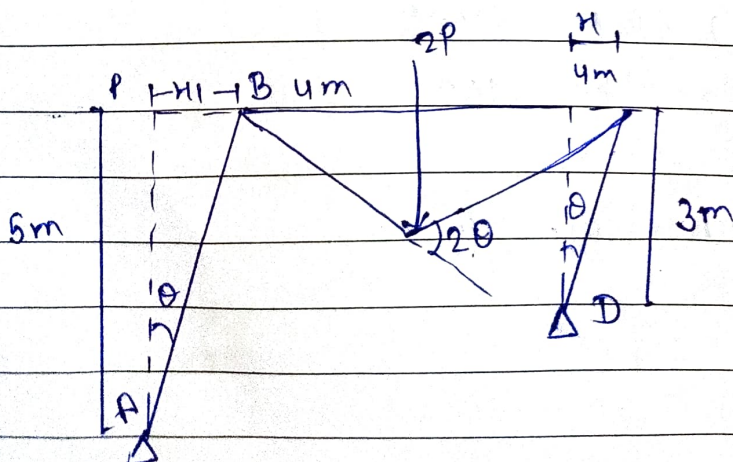 2P
H
4m
P
H1
B
4m
5m
θ
2θ
θ
3m
D
A